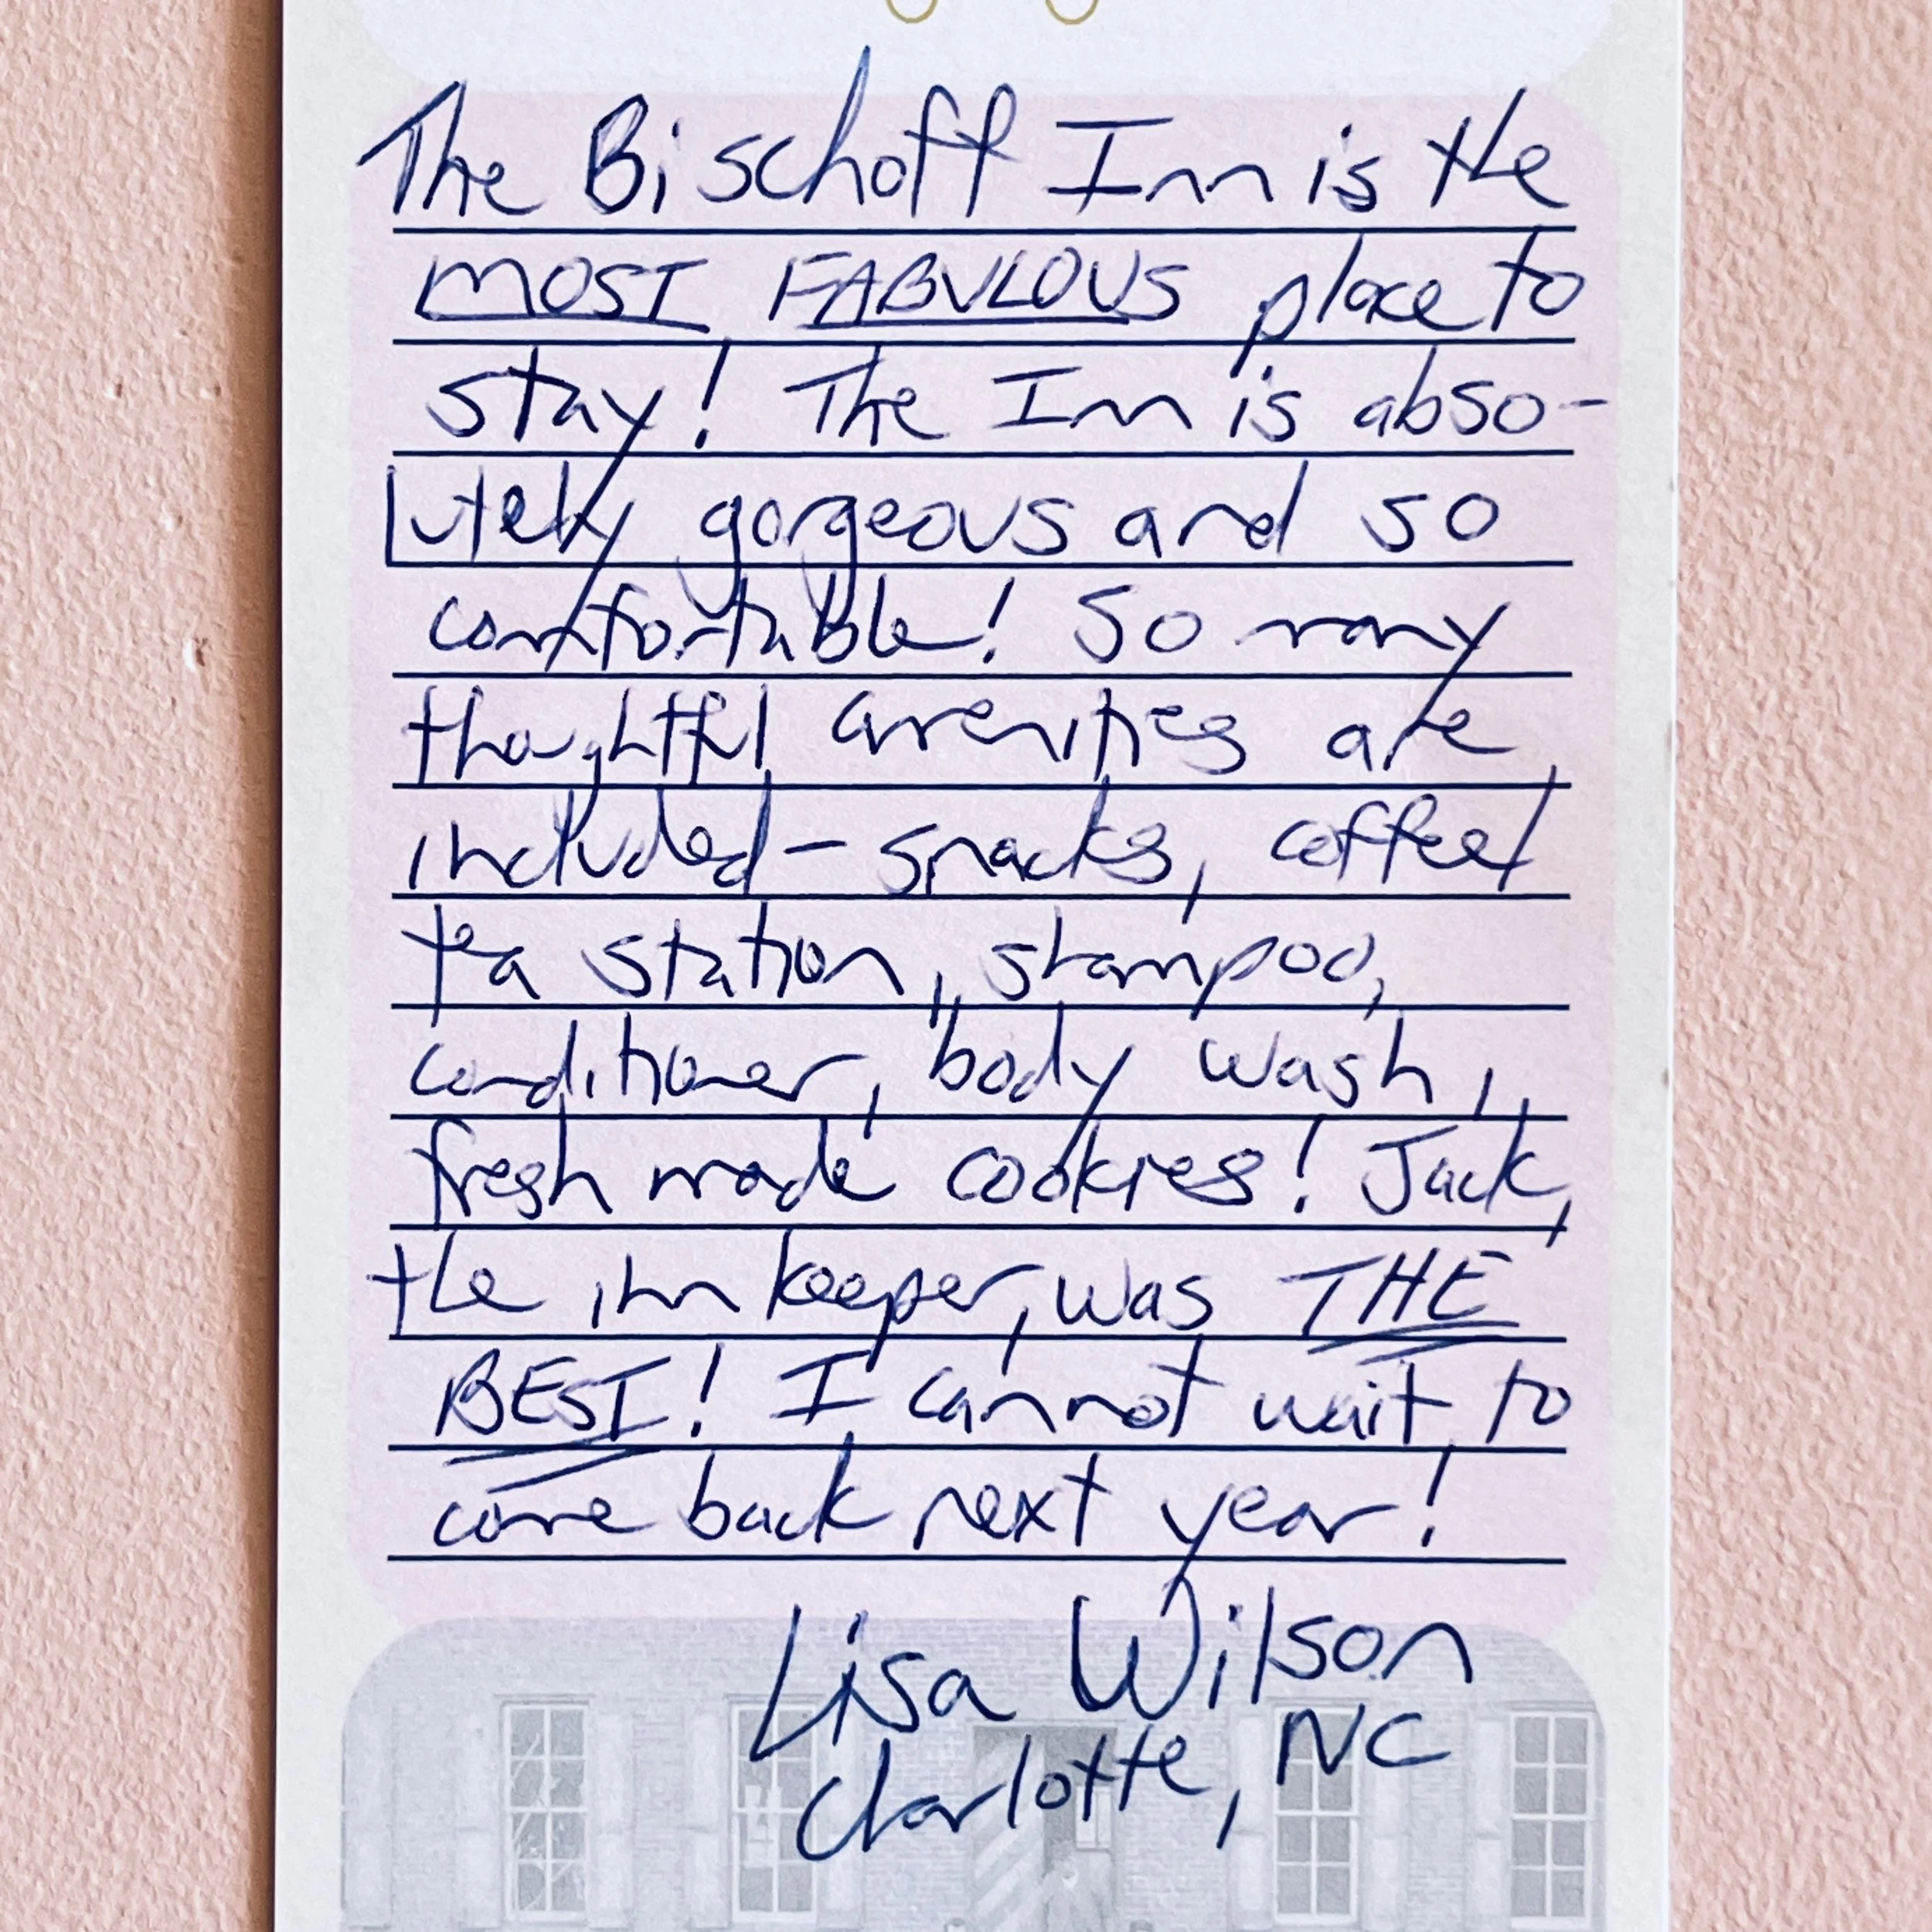 The Bischoff Inn is the
MOST FABULOUS place to
stay! The Inn is abso-
lutely gorgeous and so
comfortable! So many
thoughtful amenities are
included - snacks, coffee/
tea station, shampoo,
conditioner, body wash,
fresh made cookies! Jack,
the innkeeper, was THE
BEST! I cannot wait to
come back next year!
Lisa Wilson
Charlotte, NC